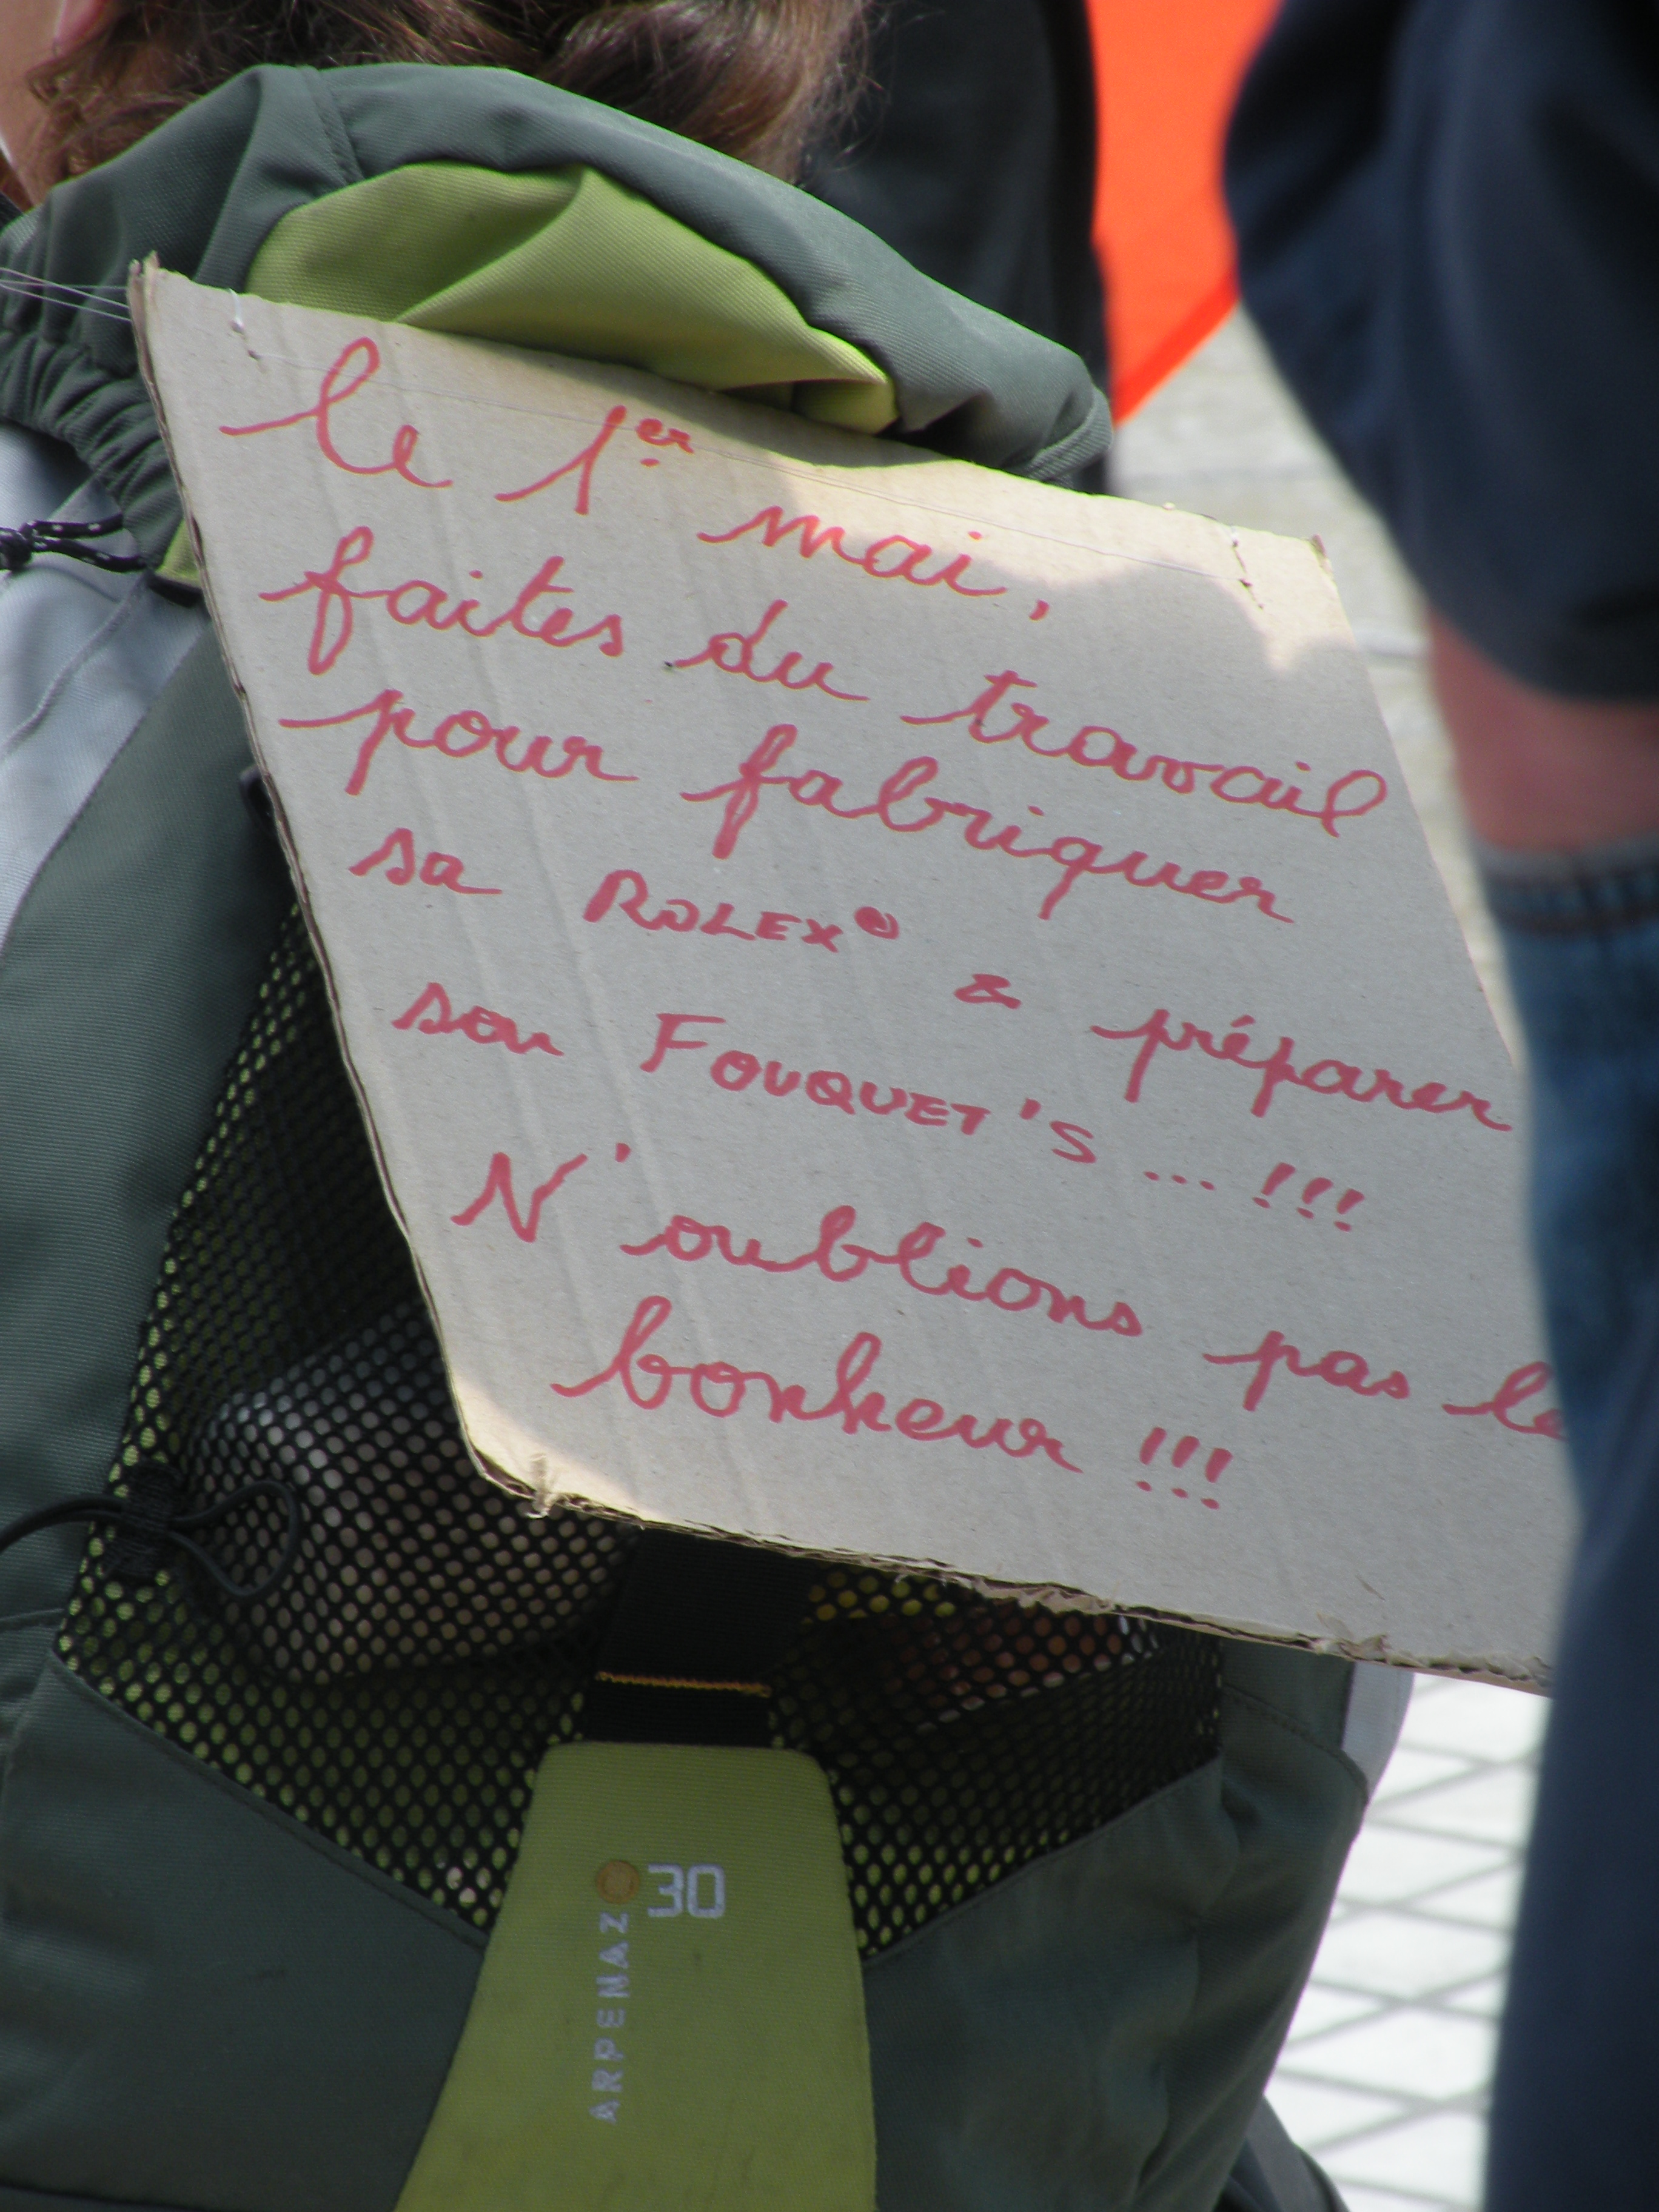 le 1er mai,
faites du travail
pour fabriquer
sa ROLEX® & préparer
son FOUQUET'S...!!!
N'oublions pas le
bonheur !!!
30
ARPENAZ